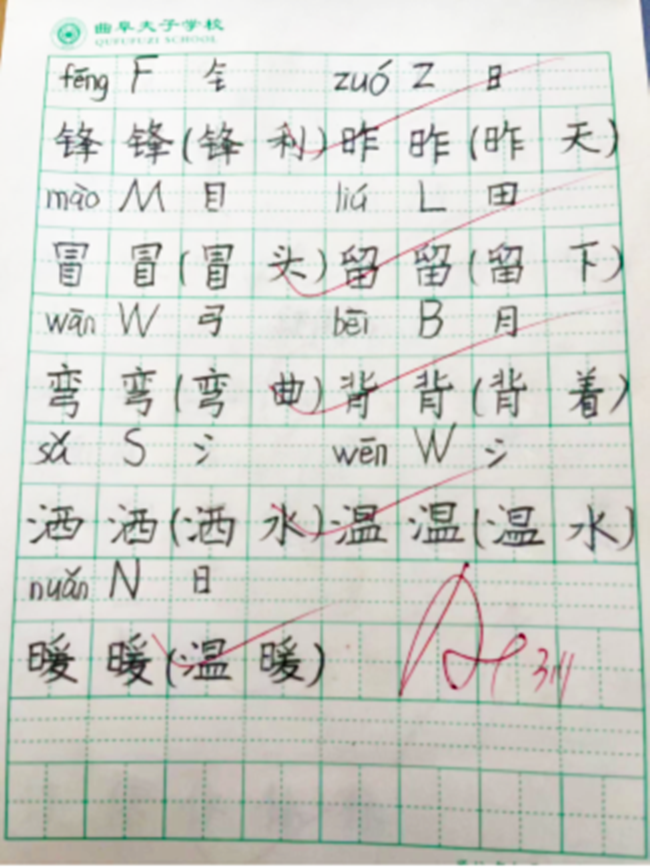 曲阜夫子学校
QUFUFUZI SCHOOL
fēng F 钅 zuó Z 日
锋 锋(锋利) 昨 昨(昨天)
mào M 目 liú L 田
冒 冒(冒头) 留 留(留下)
wān W 弓 bēi B 月
弯 弯(弯曲) 背 背(背着)
sǎ S 氵 wēn W 氵
洒 洒(洒水) 温 温(温水)
nuǎn N 日
暖 暖(温暖)